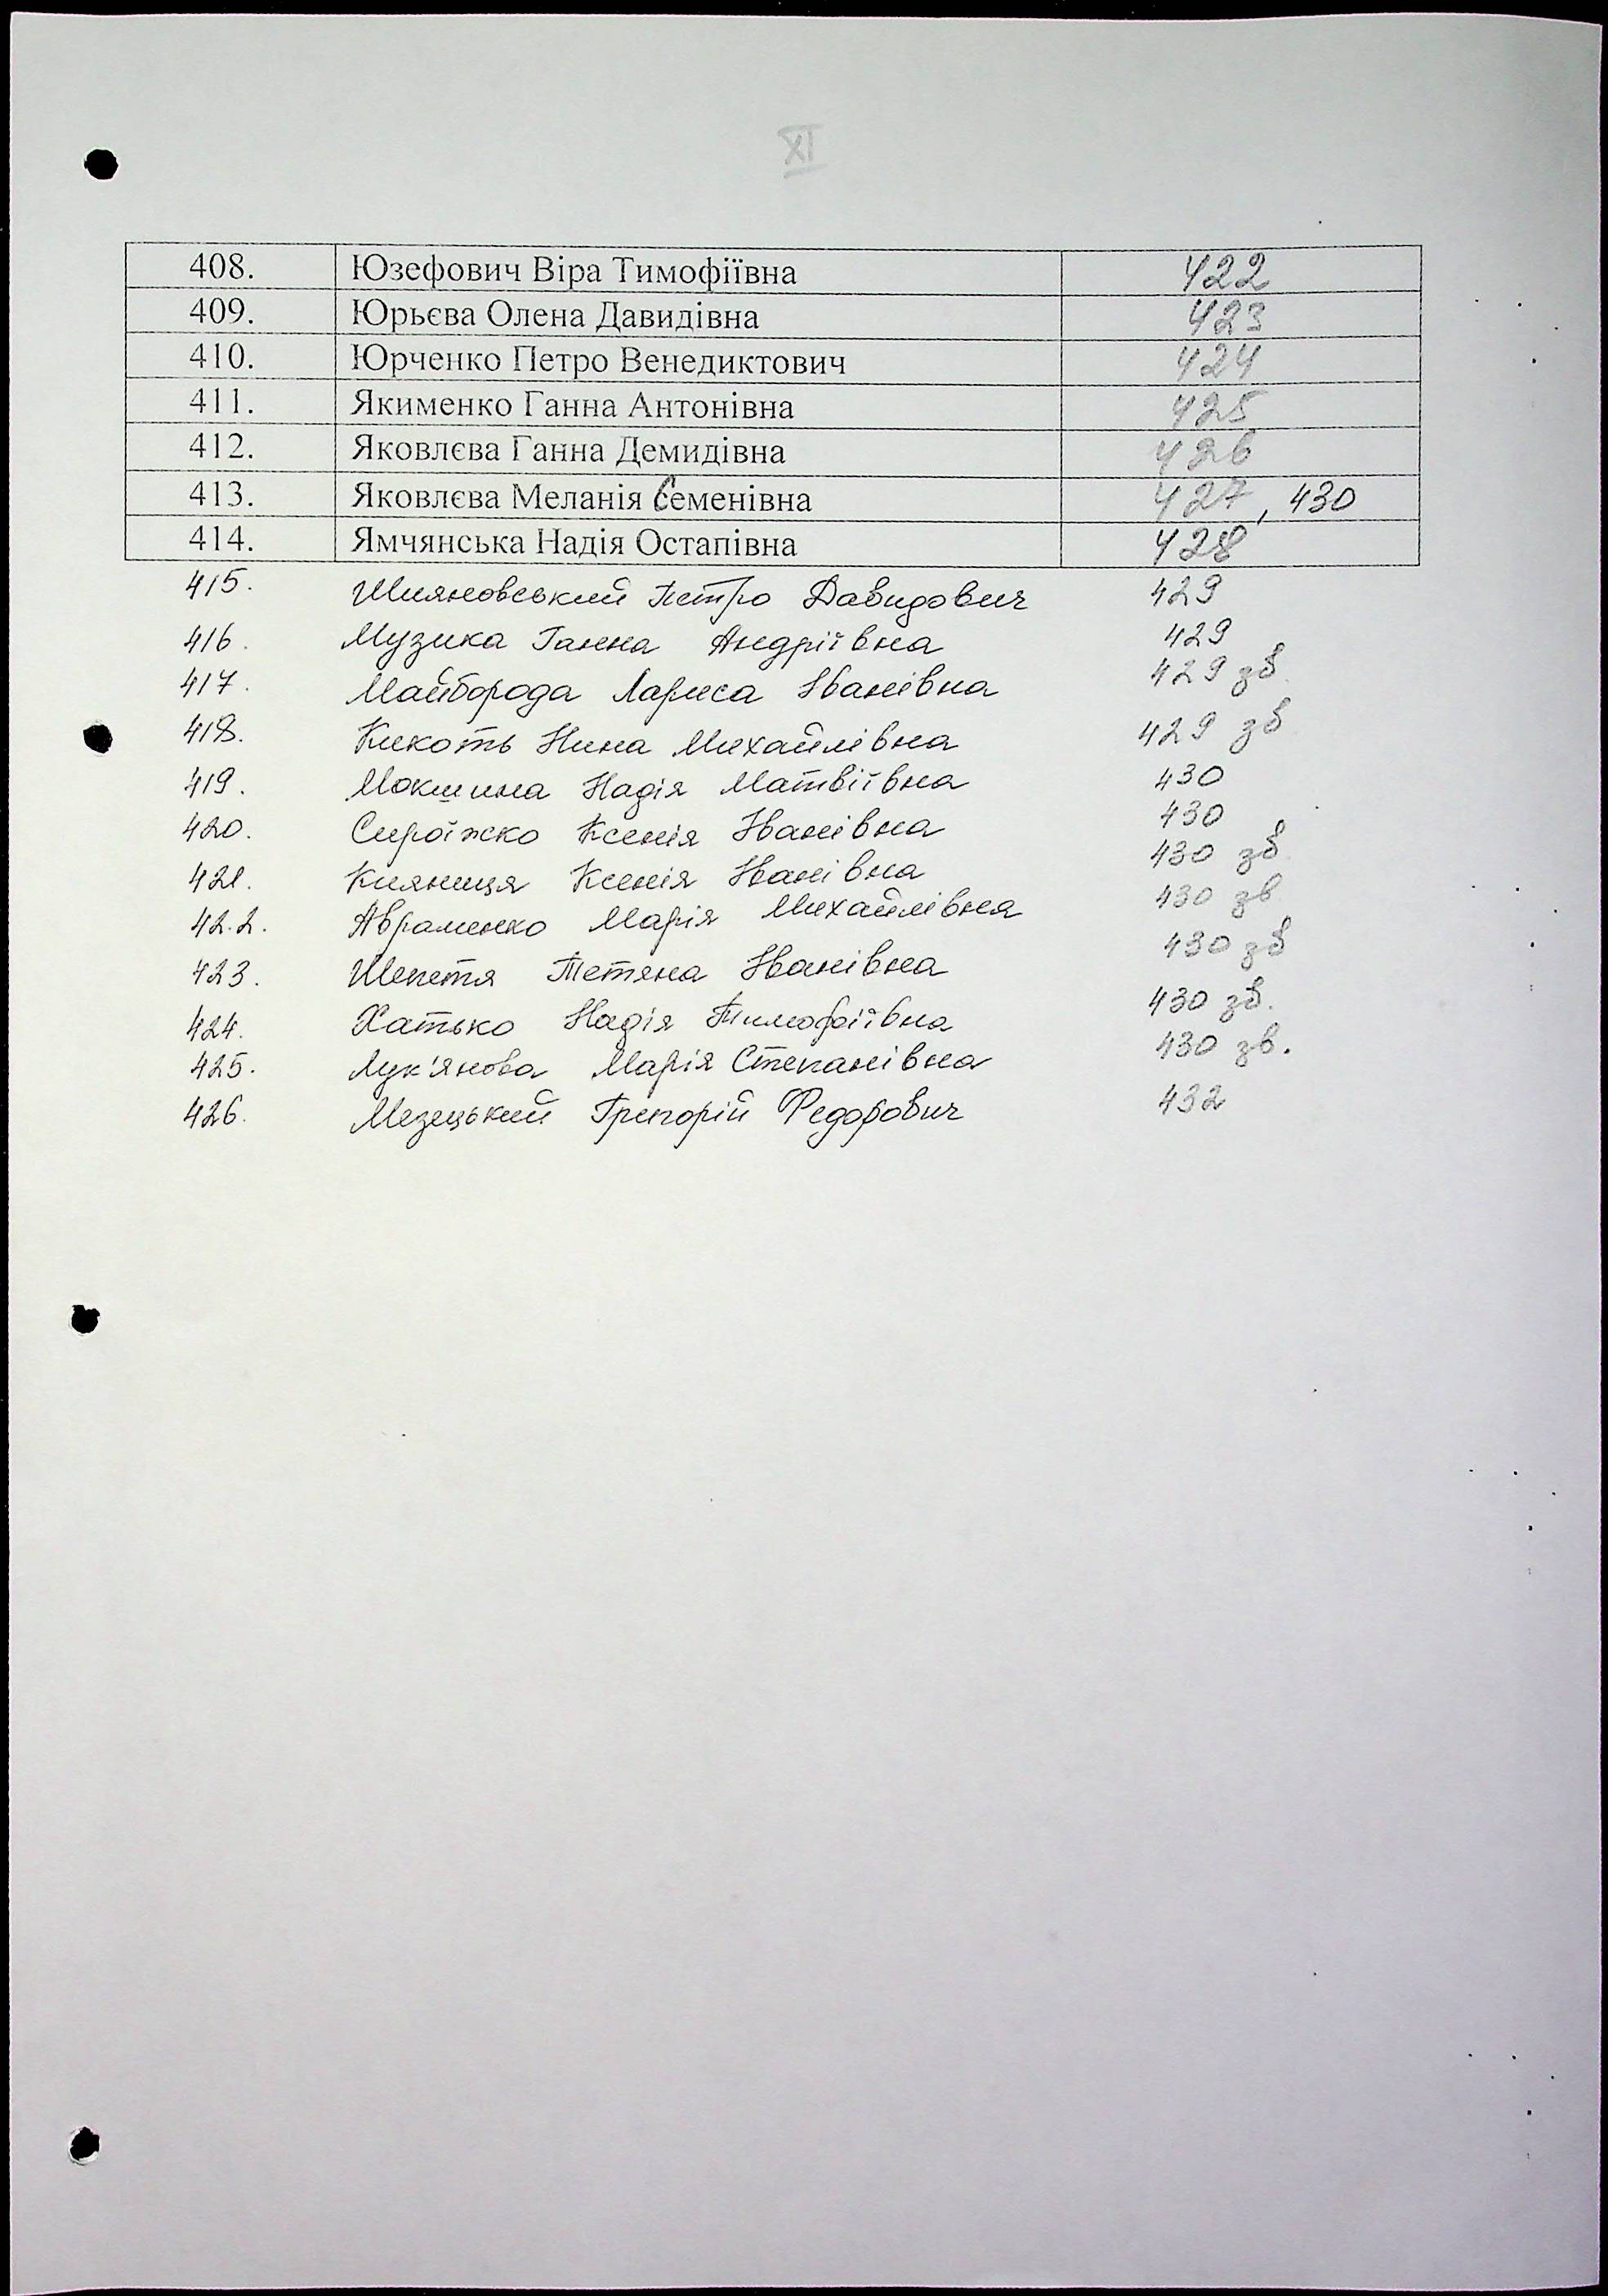 XI
408. Юзефович Віра Тимофіївна 422
409. Юрьєва Олена Давидівна 423
410. Юрченко Петро Венедиктович 424
411. Якименко Ганна Антонівна 425
412. Яковлєва Ганна Демидівна 426
413. Яковлєва Меланія Семенівна 427, 430
414. Ямчянська Надія Остапівна 428
415. Шияновський Петро Давидович 429
416. Музика Ганна Андріївна 429
417. Майборода Лариса Іванівна 429 зв
418. Кикоть Нина Михайлівна 429 зв
419. Мокшина Надія Матвіївна 430
420. Сироїжко Ксенія Іванівна 430
421. Кияниця Ксенія Іванівна 430 зв
422. Авраменко Марія Михайлівна 430 зв
423. Шепетя Тетяна Іванівна 430 зв
424. Хатько Надія Тимофіївна 430 зв.
425. Лук'янова Марія Степанівна 430 зв.
426. Мезецький Григорій Федорович 432